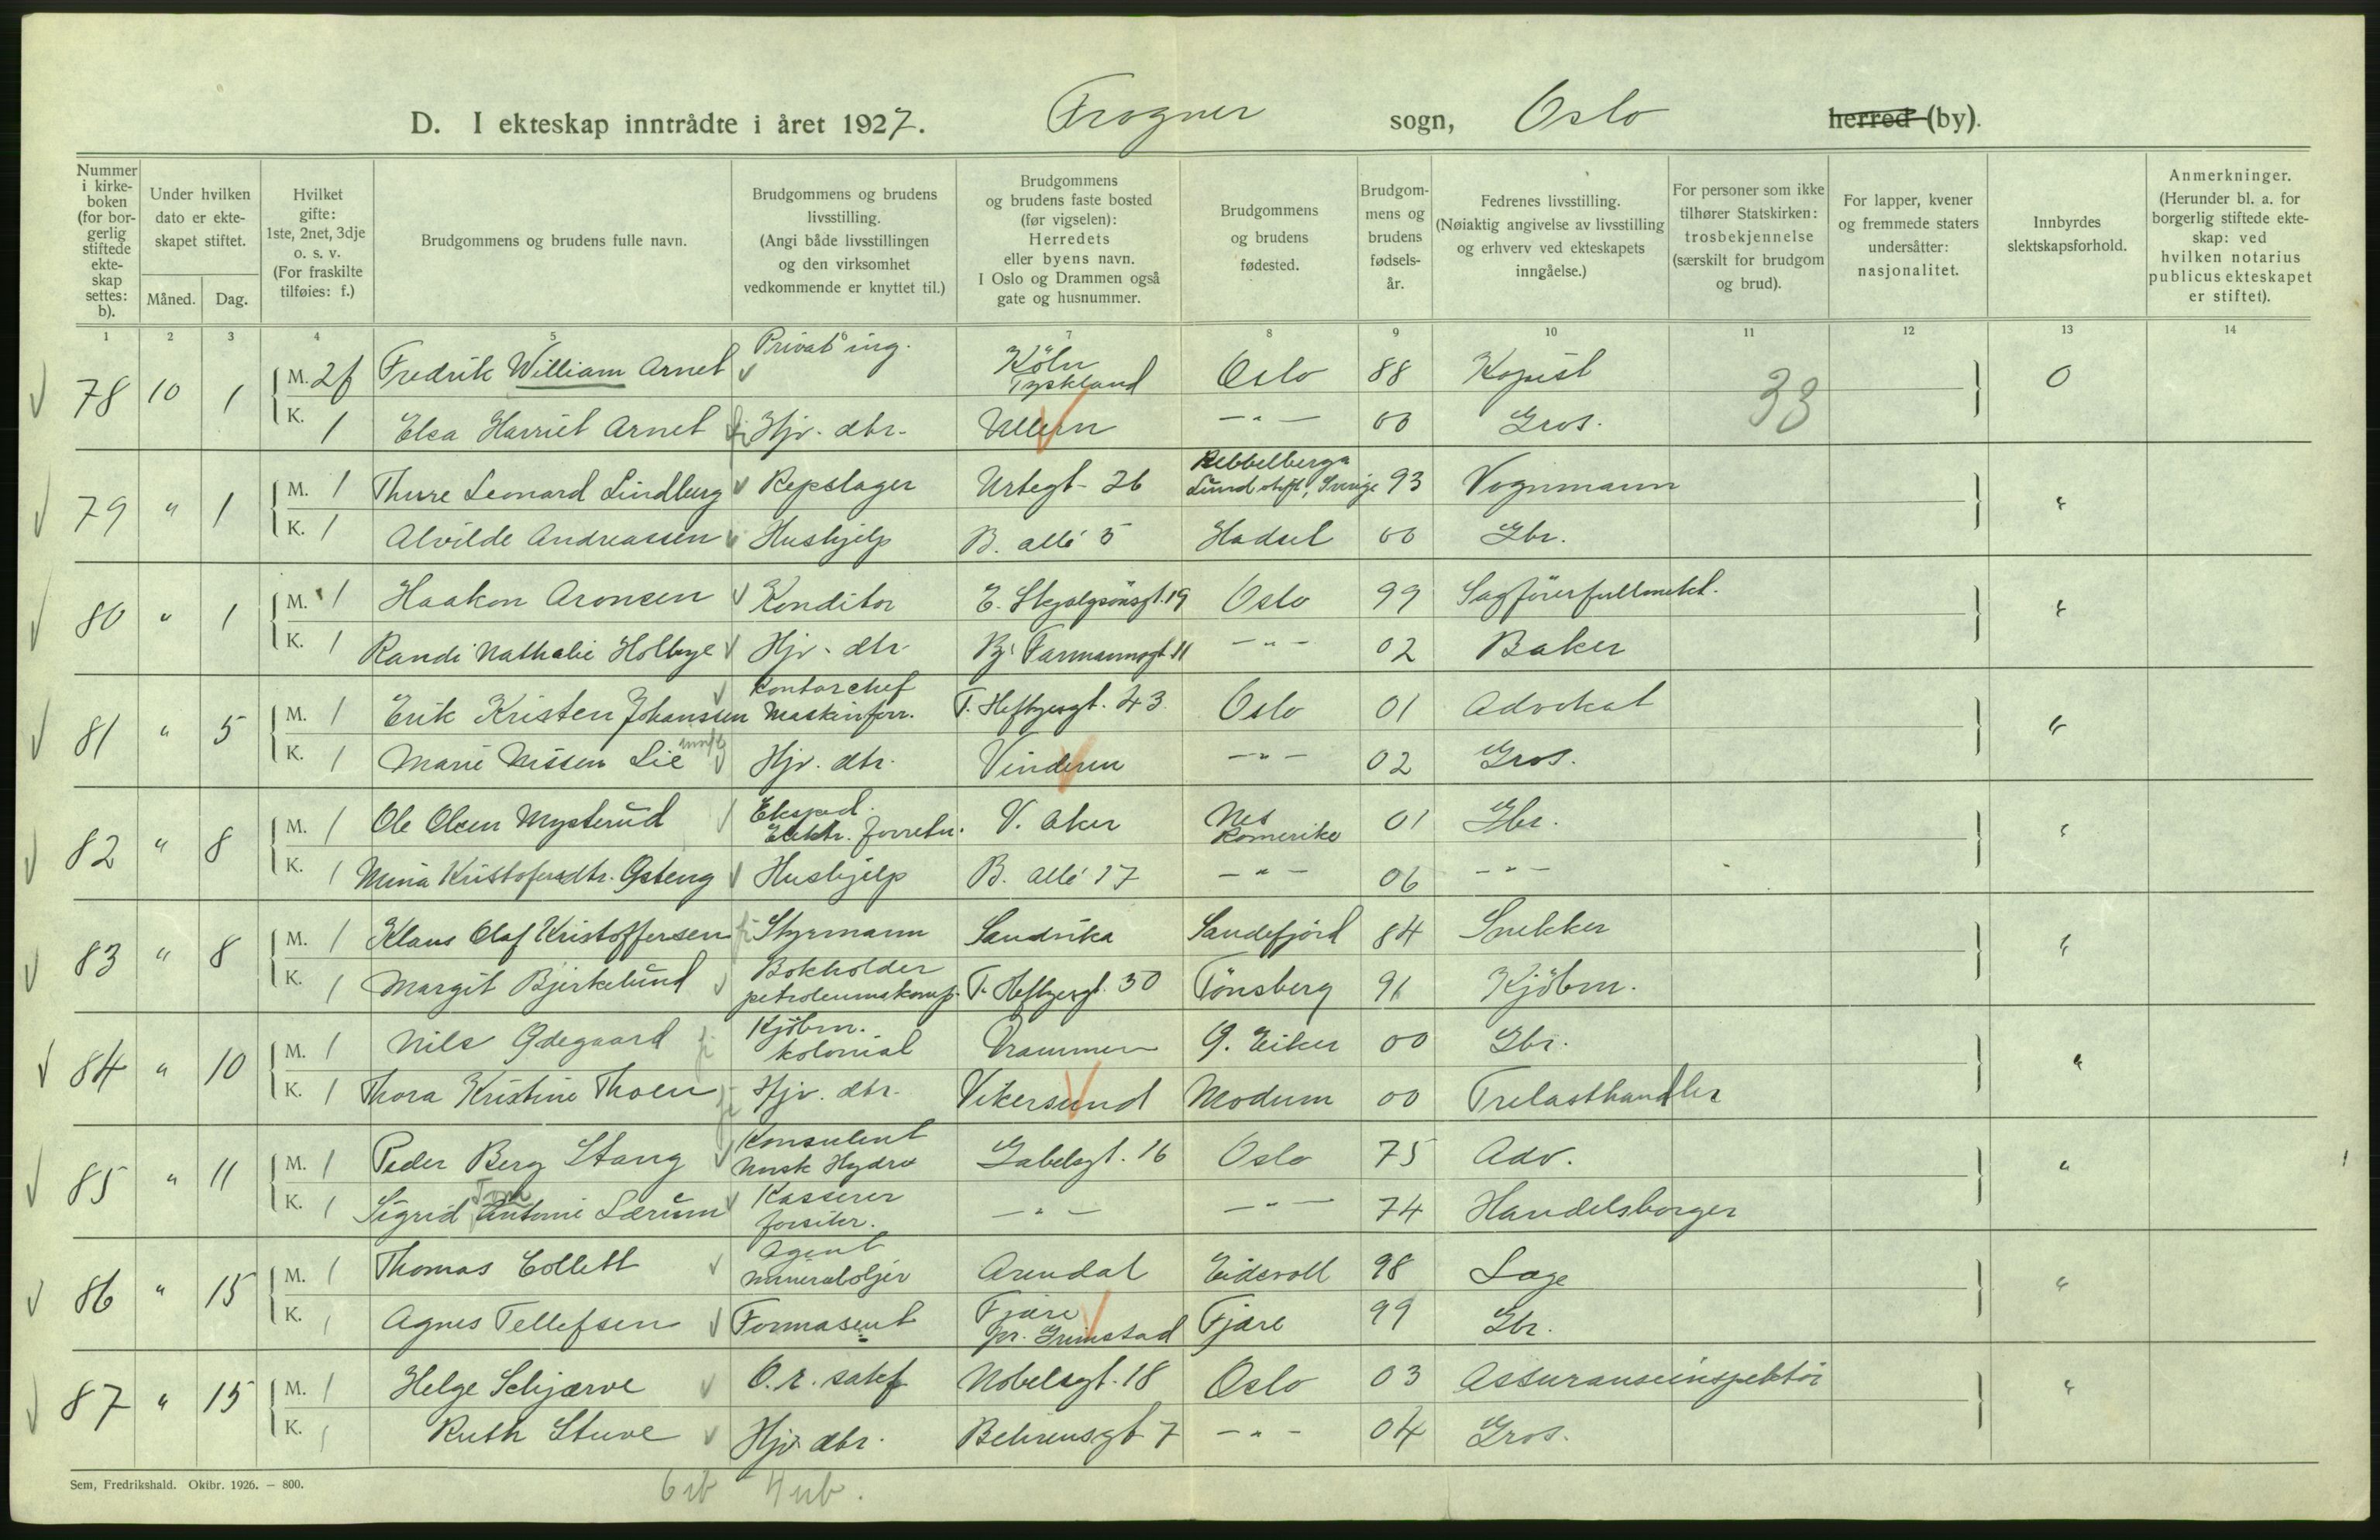 D. I ekteskap inntrådte i året 1927. Frogner sogn, Oslo herred (by).
Nummer i kirke-boken (for bor-gerlig stiftede ekte-skap settes: b).
Under hvilken dato er ekte-skapet stiftet.
Måned. Dag.
Hvilket gifte: 1ste, 2net, 3dje o. s. v. (For fraskilte tilføies: f.)
Brudgommens og brudens fulle navn.
Brudgommens og brudens livsstilling. (Angi både livsstillingen og den virksomhet vedkommende er knyttet til.)
Brudgommens og brudens faste bosted (før vigselen): Herredets eller byens navn. I Oslo og Drammen også gate og husnummer.
Brudgommens og brudens fødested.
Brudgom-mens og brudens fødsels-år.
Fedrenes livsstilling. (Nøiaktig angivelse av livsstilling og erhverv ved ekteskapets inngåelse.)
For personer som ikke tilhører Statskirken: trosbekjennelse (særskilt for brudgom og brud).
For lapper, kvener og fremmede staters undersåtter: nasjonalitet.
Innbyrdes slektskapsforhold.
Anmerkninger. (Herunder bl. a. for borgerlig stiftede ekte-skap: ved hvilken notarius publicus ekteskapet er stiftet).
1 2 3 4 5 6 7 8 9 10 11 12 13 14
78 10 1 M. 2f Fredrik William Arnet Privat ing. Köln Tyskland Oslo 88 Kopist 33 0
K. 1 Elsa Harriet Arnet Hjv. dtr. Ullern - " - 00 Gros.
79 " 1 M. 1 Thure Leonard Lindberg Repslager Urtegt. 26 Rebbelberga Lund stift, Sverige 93 Vognmann "
K. 1 Alvilde Andreassen Hushjelp B. allé 5 Hadsel 00 Gbr.
80 " 1 M. 1 Haakon Aronsen Konditor E. Skjalgsönsgt. 19 Oslo 99 Sagförerfullmekt. "
K. 1 Randi Nathalie Holbye Hjv. dtr. Bj. Farmannsgt 11 - " - 02 Baker
81 " 5 M. 1 Erik Kristen Johanssen Kontorchef Maskinforr. T. Heftyesgt. 43 Oslo 01 Advokat "
K. 1 Marie Nissen Lie Hjv. dtr. Vinderen - " - 02 Gros.
82 " 8 M. 1 Ole Olsen Mysterud Eksped. Elektr. forretn. V. Aker Nes Romerike 01 Gbr. "
K. 1 Mina Kristofersdtr. Østeng Hushjelp B. allé 17 - " - 06 - " -
83 " 8 M. 1 Klaus Olaf Kristoffersen Styrmann Sandvika Sandefjord 84 Snekker "
K. 1 Margit Bjerkelund Bokholder petroleumskomp. T. Heftyesgt. 30 Tönsberg 91 Kjöbm.
84 " 10 M. 1 Nils Ødegaard Kjöbm. kolonial Drammen Ø. Eiker 00 Gbr. "
K. 1 Thora Kristine Thoen Hjv. dtr. Vikersund Modum 00 Trelasthandler
85 " 11 M. 1 Peder Berg Stang Konsulent Norsk Hydro Gabelsgt. 16 Oslo 75 Adv. "
K. 1 Sigrid Antonie Lærum Kasserer - " - - " - 74 Handelsborger
86 " 15 M. 1 Thomas Collett Agent mineraloljer Arendal Eidsvoll 98 Læge "
K. 1 Agnes Tellefsen Fjære pr. Grimstad Fjære 99 Gbr.
87 " 15 M. 1 Helge Schjærve O.r. sakf Nobelsgt. 18 Oslo 03 Assuranseinspektör "
K. 1 Ruth Stuve Hjv. dtr. Behrensgt 7 - " - 04 Gros.
Sem, Fredrikshald. Oktbr. 1926. - 800.